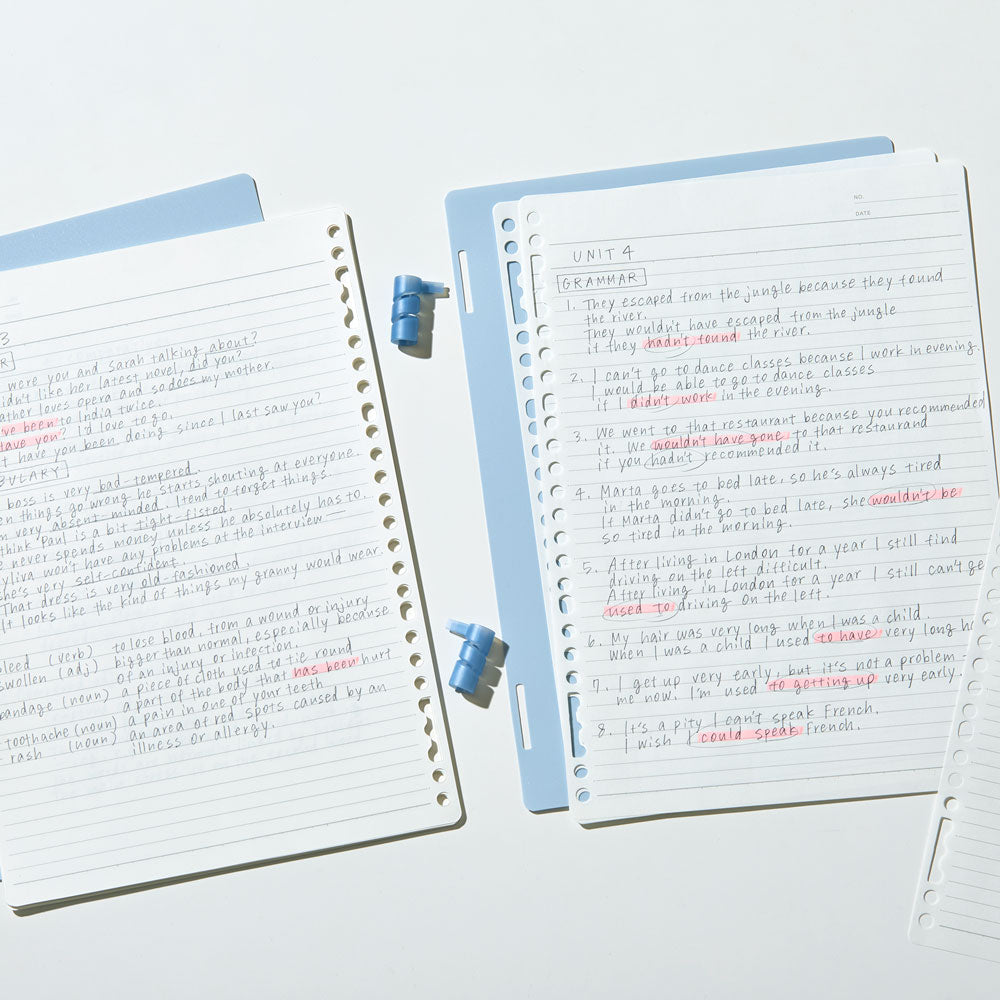 3
R
were you and Sarah talking about?
didn't like her latest novel, did you?
ather loves opera and so does my mother.
've been to India twice.
Have you? I'd love to go.
t have you been doing since I last saw you?
BULARY
boss is very bad-tempered.
en things go wrong he starts shouting at everyone.
m very absent-minded. I tend to forget things.
think Paul is a bit tight-fisted.
e never spends money unless he absolutely has to.
yliva won't have any problems at the interview
she's very self-confident.
That dress is very old-fashioned.
It looks like the kind of things my granny would wear.
bleed (verb) to lose blood, from a wound or injury
swollen (adj) bigger than normal, especially because
of an injury or infection.
bandage (noun) a piece of cloth used to tie round
a part of the body that has been hurt
toothache (noun) a pain in one of your teeth
rash (noun) an area of red spots caused by an
illness or allergy.
NO.
DATE
UNIT 4
GRAMMAR
1. They escaped from the jungle because they found
the river.
They wouldn't have escaped from the jungle
if they hadn't found the river.
2. I can't go to dance classes because I work in evening.
I would be able to go to dance classes
if I didn't work in the evening.
3. We went to that restaurant because you recommended
it. We wouldn't have gone to that restaurand
if you hadn't recommended it.
4. Marta goes to bed late, so he's always tired
in the morning.
If Marta didn't go to bed late, she wouldn't be
so tired in the morning.
5. After living in London for a year I still find
driving on the left difficult.
After living in London for a year I still can't ge
used to driving on the left.
6. My hair was very long when I was a child.
When I was a child I used to have very long ha
7. I get up very early, but it's not a problem
me now. I'm used to getting up very early.
8. It's a pity I can't speak French.
I wish I could speak French.